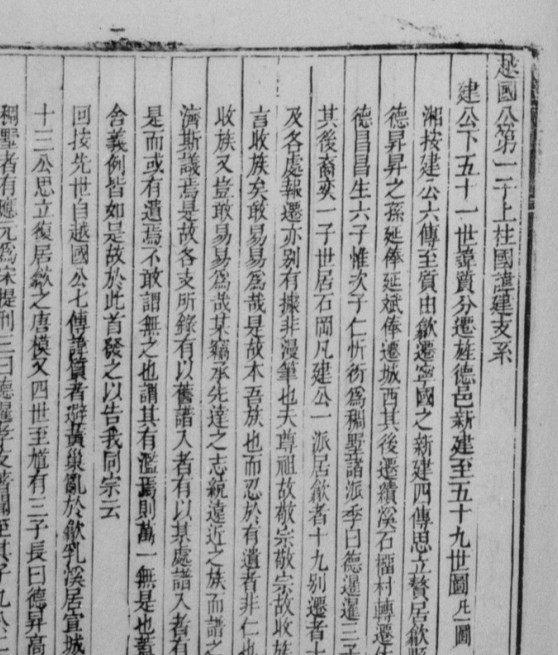 越國公第一子上柱國諱建支系
建公下五十一世諱質分遷旌德邑新建至五十九世圖凡一圖
湘按建公六傳至質由歙遷寧國之新建四傳思立贅居歙
德昇昇之孫延俸延斌俸遷城西其後遷績溪石橊村轉遷
德昌昌生六子惟次子仁忻衍為稠墅諸派季曰德暹暹三子
其後裔奕一子世居石岡凡建公一派居歙者十九別遷者
及各處報遷亦别有據非漫筆也夫尊祖故敬宗敬宗故收族
言收族矣敢易易為哉是故本吾族也而忍於有遺者非仁也
收族又豈敢易易為哉某竊承先達之志統遠近之族而譜之
濟斯議焉是故各支所錄有以舊譜入者有以某處譜入者有
是而或有遺焉不敢謂無之也謂其有濫焉則萬一無是也蓋
舍義例皆如是故於此首發之以告我同宗云
回按先世自越國公七傳諱質者避黃巢亂於歙乳溪居宣城
十三公思立復居歙之唐模又四世至馗有三子長曰德昇高
稠墅者有應元為宋提刑三曰德暹季及著國至其子九公